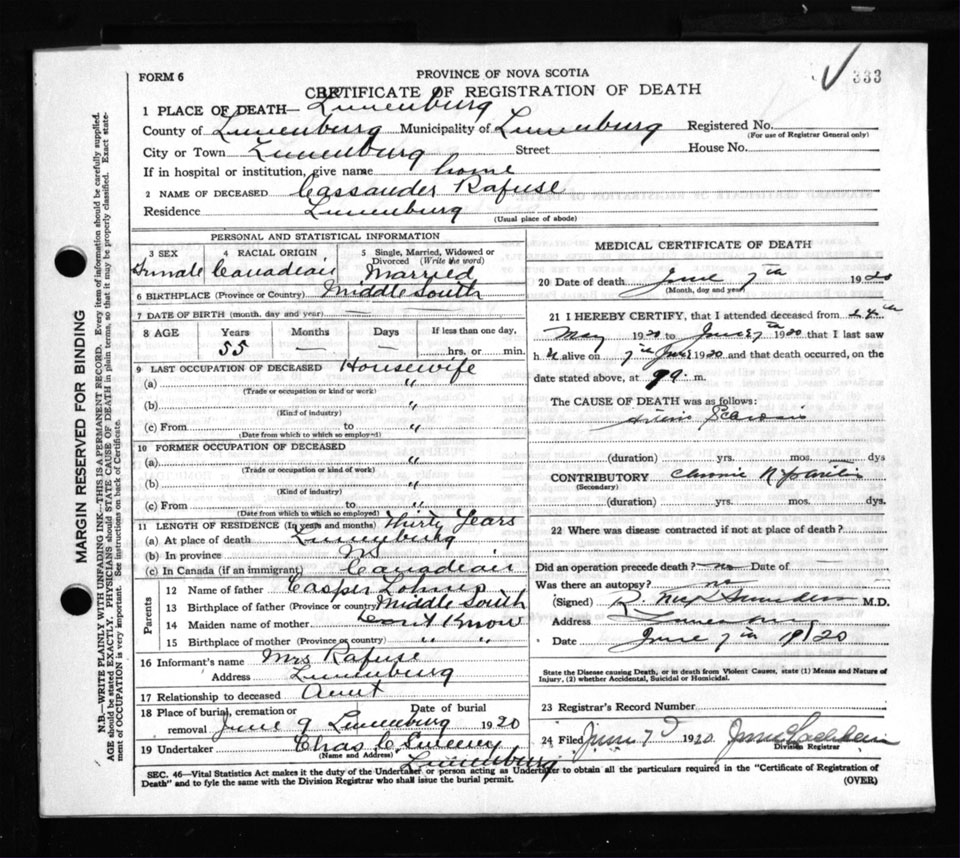 333
FORM 6
PROVINCE OF NOVA SCOTIA
CERTIFICATE OF REGISTRATION OF DEATH
1 PLACE OF DEATH— Lunenburg
County of Lunenburg Municipality of Lunenburg Registered No.
(For use of Registrar General only)
City or Town Lunenburg Street House No.
If in hospital or institution, give name home
2 NAME OF DECEASED Cassander Rafuse
Residence Lunenburg
(Usual place of abode)
PERSONAL AND STATISTICAL INFORMATION
3 SEX 4 RACIAL ORIGIN 5 Single, Married, Widowed or Divorced (Write the word)
Female Canadian Married
6 BIRTHPLACE (Province or Country) Middle South
7 DATE OF BIRTH (month, day and year)
8 AGE Years Months Days If less than one day,
55 — — hrs. or min.
9 LAST OCCUPATION OF DECEASED Housewife
(a) "
(Trade or occupation or kind or work)
(b) "
(Kind of industry)
(c) From to "
(Date from which to which so employed)
10 FORMER OCCUPATION OF DECEASED
(a) "
(Trade or occupation or kind of work)
(b) "
(Kind of industry)
(c) From to "
(Date from which to which so employed)
11 LENGTH OF RESIDENCE (In years and months) Thirty Years
(a) At place of death Lunenburg
(b) In province NS
(c) In Canada (if an immigrant) Canadian
Parents
12 Name of father Casper Lohnes
13 Birthplace of father (Province or country) Middle South
14 Maiden name of mother Don't Know
15 Birthplace of mother (Province or country) " "
16 Informant's name Mrs Rafuse
Address Lunenburg
17 Relationship to deceased Aunt
18 Place of burial, cremation or removal Date of burial
June 9 Lunenburg 1920
19 Undertaker Chas C Sweeney
(Name and Address) Lunenburg
MEDICAL CERTIFICATE OF DEATH
20 Date of death June 7th 1920
(Month, day and year)
21 I HEREBY CERTIFY, that I attended deceased from 24th
May 1920 to June 7th 1920 that I last saw
h er alive on 7th June 1920 and that death occurred, on the
date stated above, at 9 a. m.
The CAUSE OF DEATH was as follows:
(duration) yrs. mos. dys
CONTRIBUTORY Chronic Nephritis
(Secondary)
(duration) yrs. mos. dys.
22 Where was disease contracted if not at place of death?
Did an operation precede death? no Date of
Was there an autopsy? no
(Signed) Saunders M.D.
Address Lunenburg
Date June 7th 1920
State the Disease causing Death, or in death from Violent Causes, state (1) Means and Nature of
Injury, (2) whether Accidental, Suicidal or Homicidal.
23 Registrar's Record Number
24 Filed June 7 1920
Division Registrar
SEC. 46—Vital Statistics Act makes it the duty of the Undertaker or person acting as Undertaker to obtain all the particulars required in the "Certificate of Registration of
Death" and to fyle the same with the Division Registrar who shall issue the burial permit. (OVER)
MARGIN RESERVED FOR BINDING
N.B.—WRITE PLAINLY WITH UNFADING INK—THIS IS A PERMANENT RECORD. Every item of information should be carefully supplied.
AGE should be stated EXACTLY. PHYSICIANS should STATE CAUSE OF DEATH in plain terms, so that it may be properly classified. Exact state-
ment of OCCUPATION is very important. See instructions on back of Certificate.